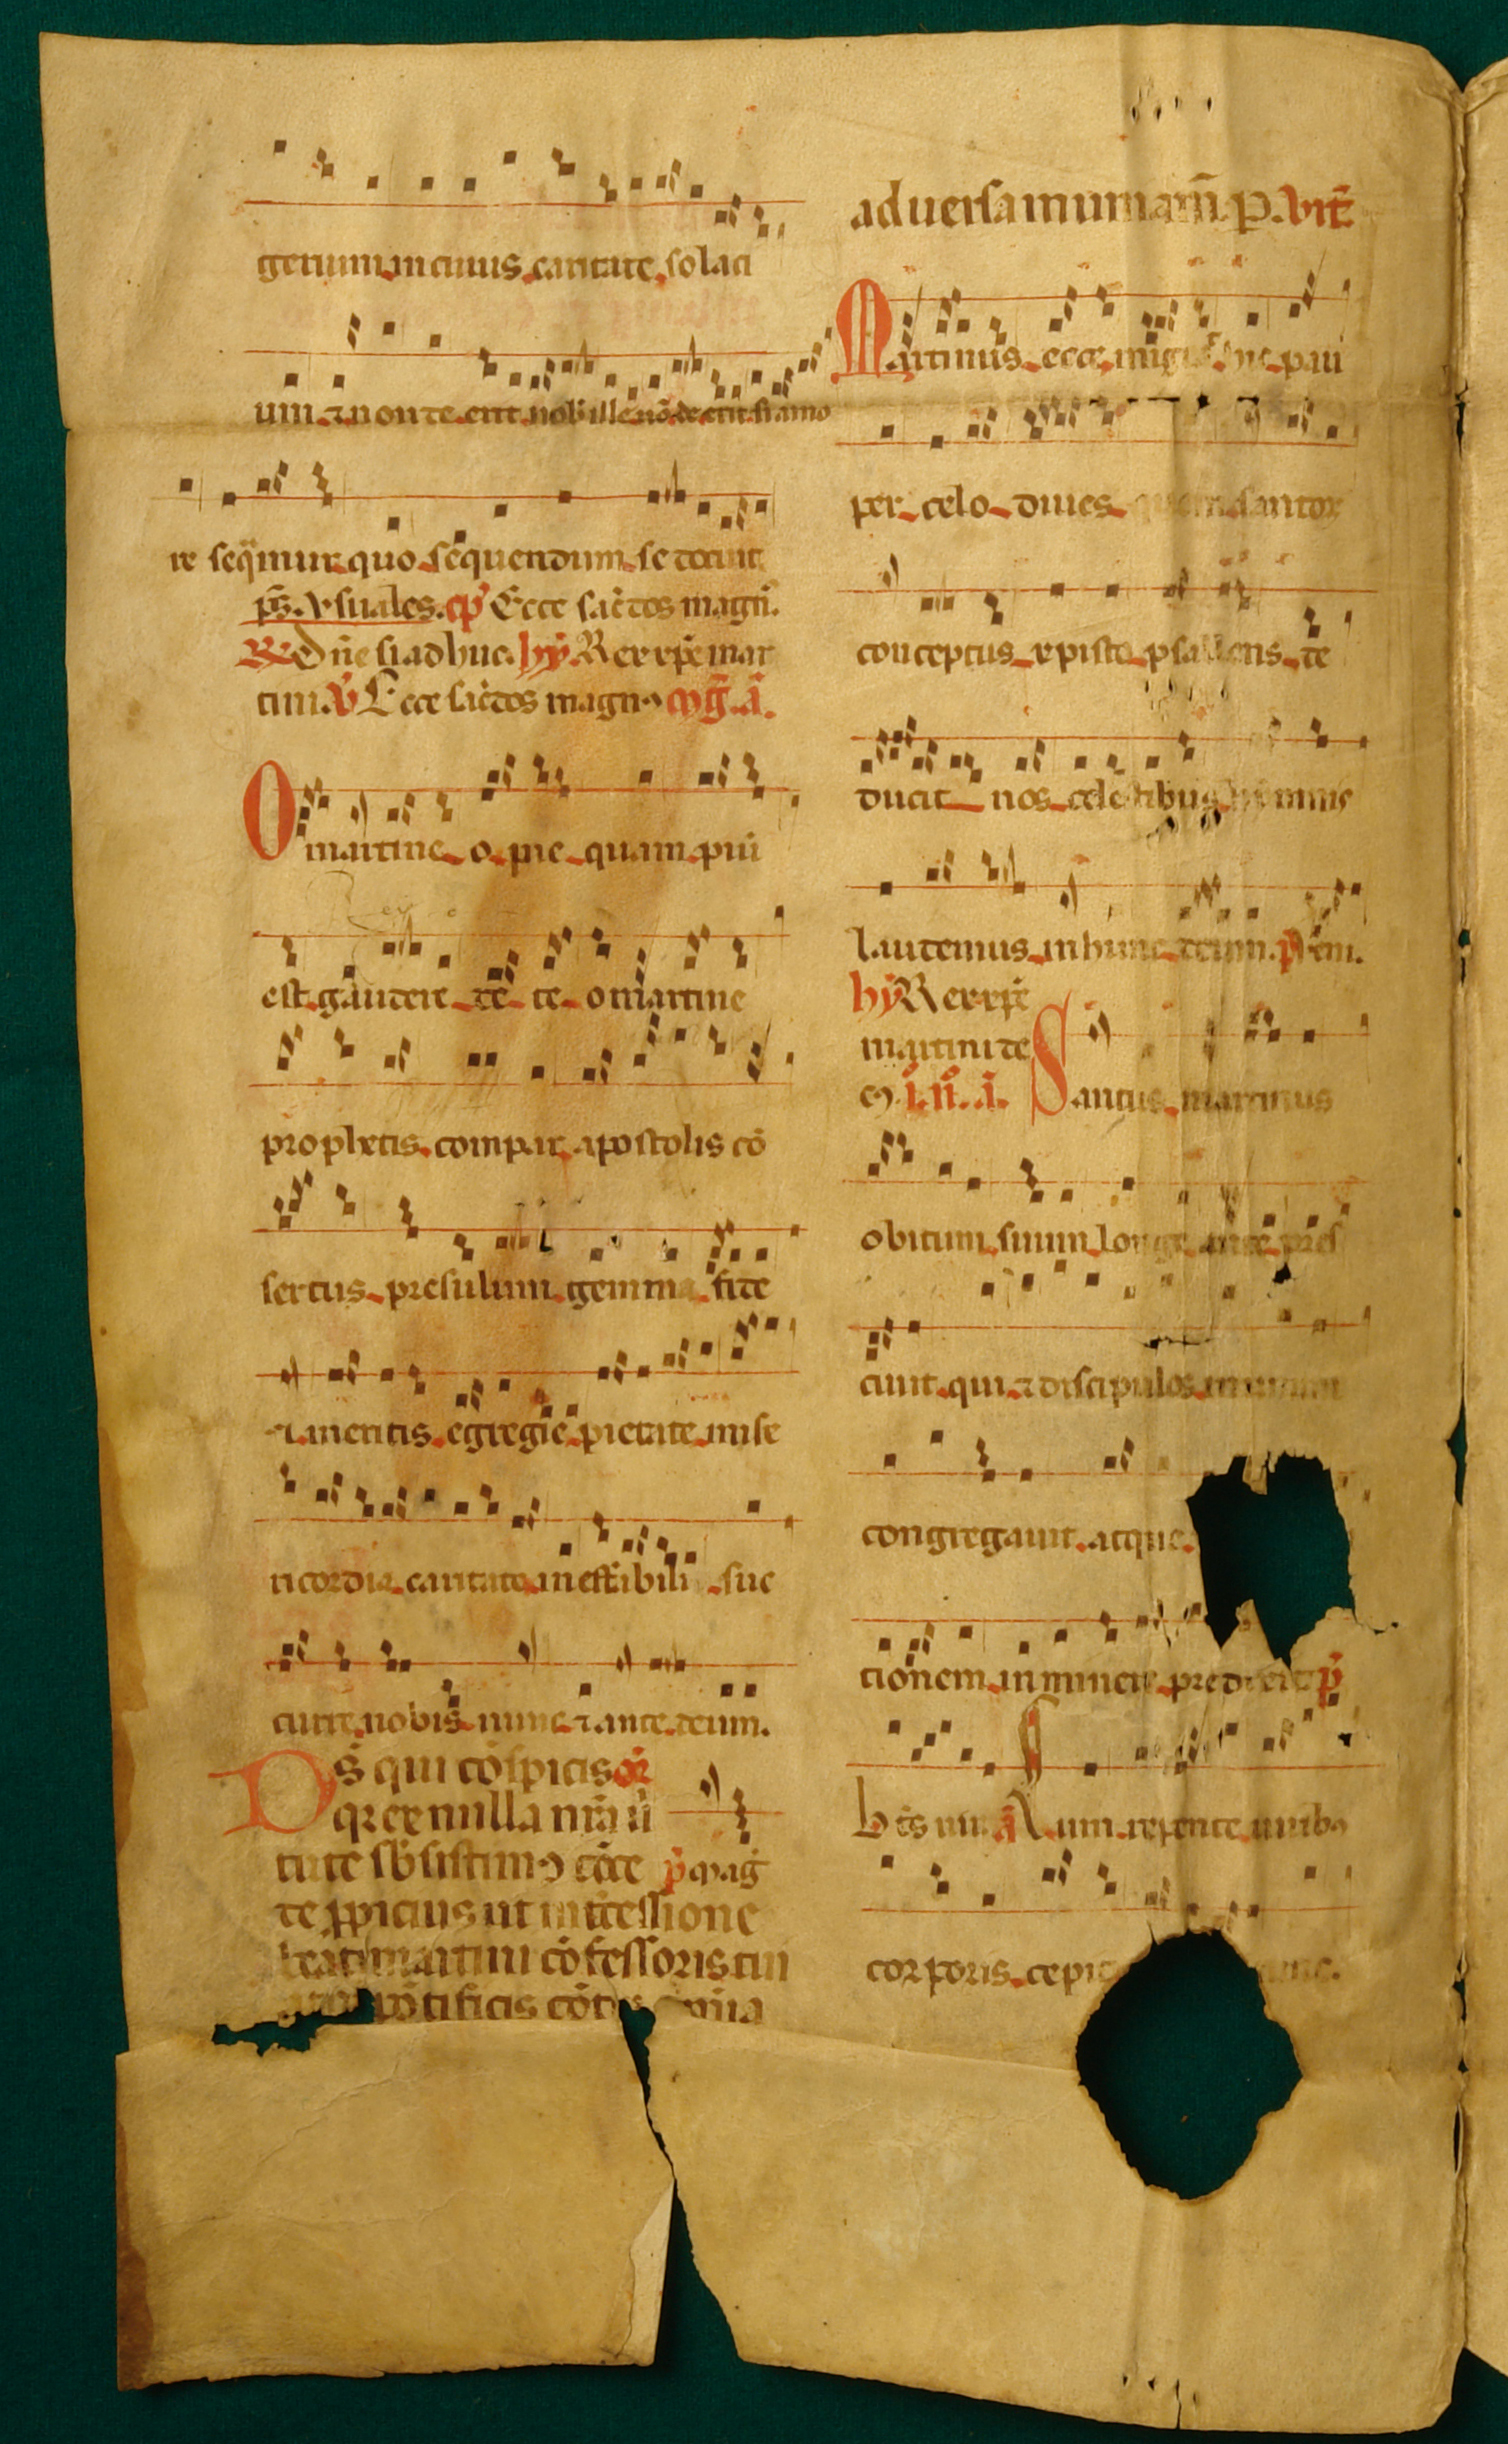 gerium in cuius caritate solaci
um ⁊ non te erit nobis ille nō de erit si amo
re seq̄mur quo sequendum se docuit
ps̄. vsuales. cp̄ Ecce sac̄dos magn̄.
R Dn̄e si adhuc. hȳ. Rex xp̄e mar
tini. v̄ Ecce sac̄dos magnꝰ mḡ. ā.
O martine o pie quam piū
est gaudere de te o martine
prophetis compar apostolis cō
sertus presulum gemma fide
⁊ meritis egregie pietate mise
ricordia caritate ineffabili suc
curre nobis nunc ⁊ ante deum.
Ds̄ qui cōspicis or̄
qr ex nulla nr̄a ū
tute sb̄sistimꝰ cōce p̄ maḡ
de ꝓpicius ut int̄cessione
beati martini cōfessoris tui
pōtificis cōt omnia
aduersa muniam̄. p. vit̄
Martinus ecce migrat hic pau
per celo diues quem sanctoꝝ
conceptus xpisto psallens de
ducit nos celestibus hymnis
laudemus in hunc deum. p̄ em.
hȳ Rex xp̄e
martini de
cꝰ. ī. n̄. ā. Sanctus martinus
obitum suum longe ante pres
ciuit qui ⁊ discipulos in unum
congregauit atque
tionem inminere predixit p̄
Bt̄s uir ā Cum repente uiribꝰ
corporis cepit